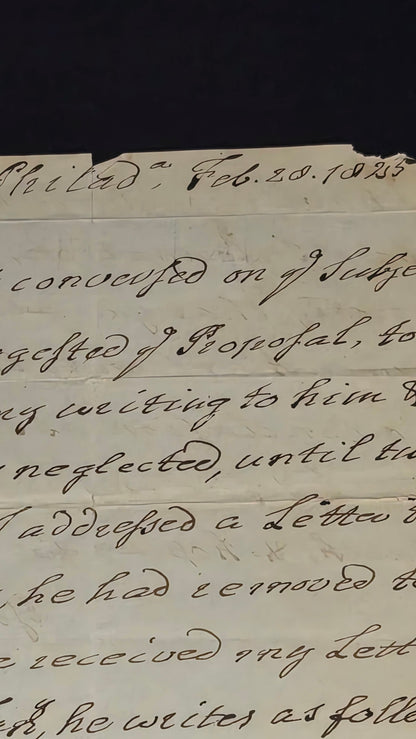 Philad.ª, Feb. 28. 1825
conversed on yͤ Subje
gested yͤ Proposal, to
ng writing to him &
neglected, until tw
I addressed a Letter
he had removed to
e received my Lett
he writes as follo